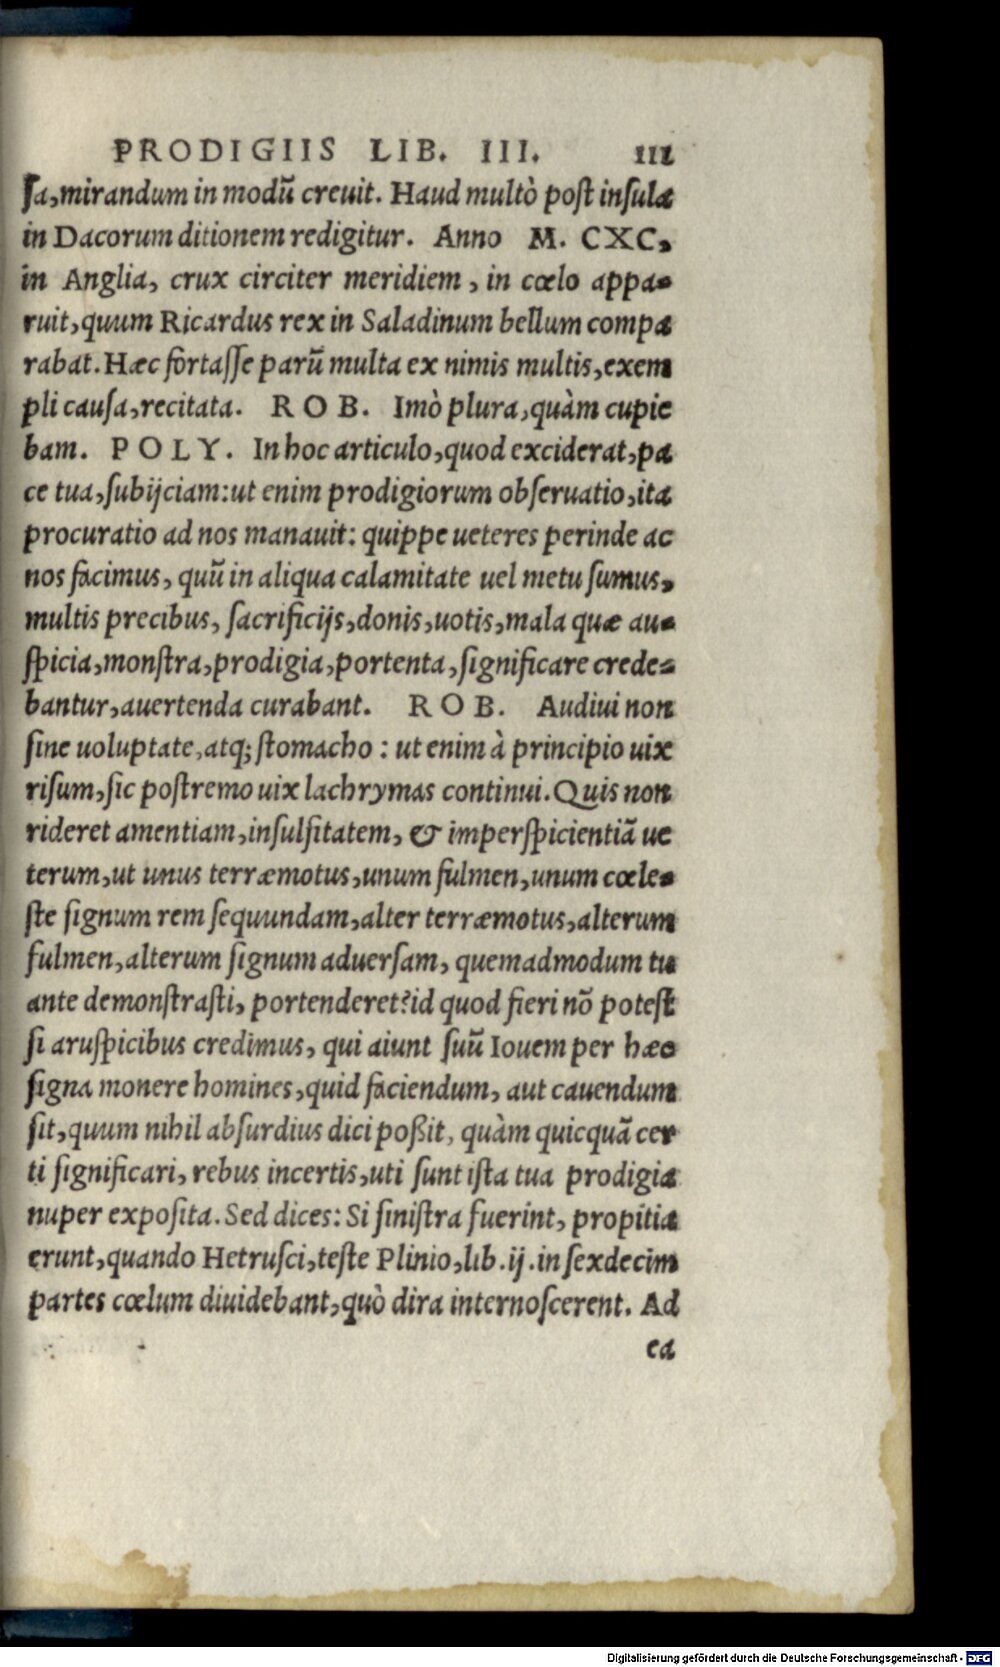 PRODIGIIS LIB. III. 111
ſa,mirandum in modũ creuit. Haud multò poſt inſula
in Dacorum ditionem redigitur. Anno M. CXC,
in Anglia, crux circiter meridiem, in cœlo appa-
ruit,quum Ricardus rex in Saladinum bellum compa
rabat. Hæc fortaſſe parũ multa ex nimis multis,exem
pli cauſa,recitata. ROB. Imò plura,quàm cupie
bam. POLY. In hoc articulo,quod exciderat,pa
ce tua,ſubijciam:ut enim prodigiorum obſeruatio,ita
procuratio ad nos manauit: quippe ueteres perinde ac
nos facimus, quũ in aliqua calamitate uel metu ſumus,
multis precibus, ſacrificijs,donis,uotis,mala quæ au-
ſpicia,monſtra,prodigia,portenta,ſignificare crede-
bantur,auertenda curabant. ROB. Audiui non
ſine uoluptate,atq; ſtomacho : ut enim à principio uix
riſum,ſic poſtremo uix lachrymas continui. Quis non
rideret amentiam,inſulſitatem, & imperſpicientiã ue
terum,ut unus terræmotus,unum fulmen,unum cœle-
ſte ſignum rem ſequundam,alter terræmotus,alterum
fulmen,alterum ſignum aduerſam, quemadmodum tu
ante demonſtraſti, portenderet?id quod fieri nõ poteſt
ſi aruſpicibus credimus, qui aiunt ſuũ Iouem per hæc
ſigna monere homines,quid faciendum, aut cauendum
ſit,quum nihil abſurdius dici poßit, quàm quicquã cer
ti ſignificari, rebus incertis,uti ſunt iſta tua prodigia
nuper expoſita. Sed dices: Si ſiniſtra fuerint, propitia
erunt,quando Hetruſci,teſte Plinio,lib.ij.in ſexdecim
partes cœlum diuidebant,quò dira internoſcerent. Ad
ea
Digitalisierung gefördert durch die Deutsche Forschungsgemeinschaft - DFG